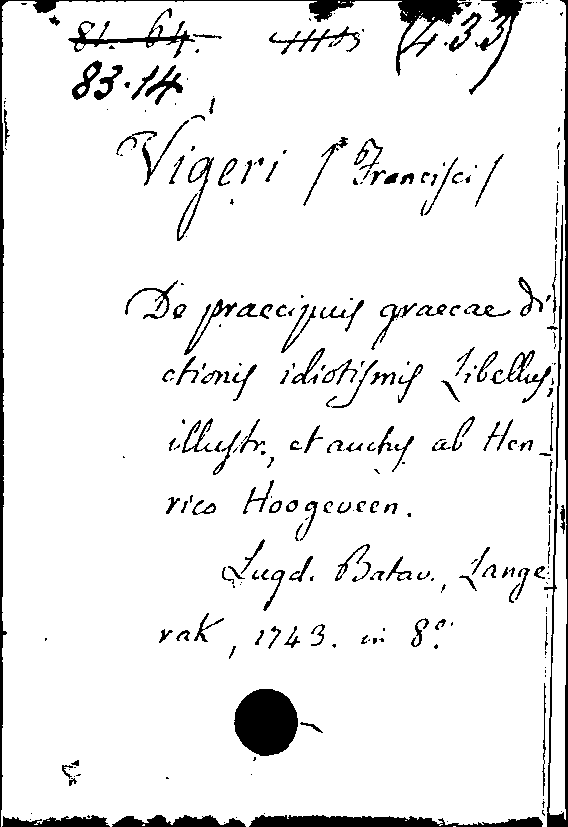 81. 64. (4.33)
83.14
Vigeri / Francisci /
De praecipuis graecae di-
ctionis idiotismis Libellus,
illustr., et auctus ab Hen-
rico Hoogeveen.
Lugd. Batav., Lange-
rak, 1743. in 8o.